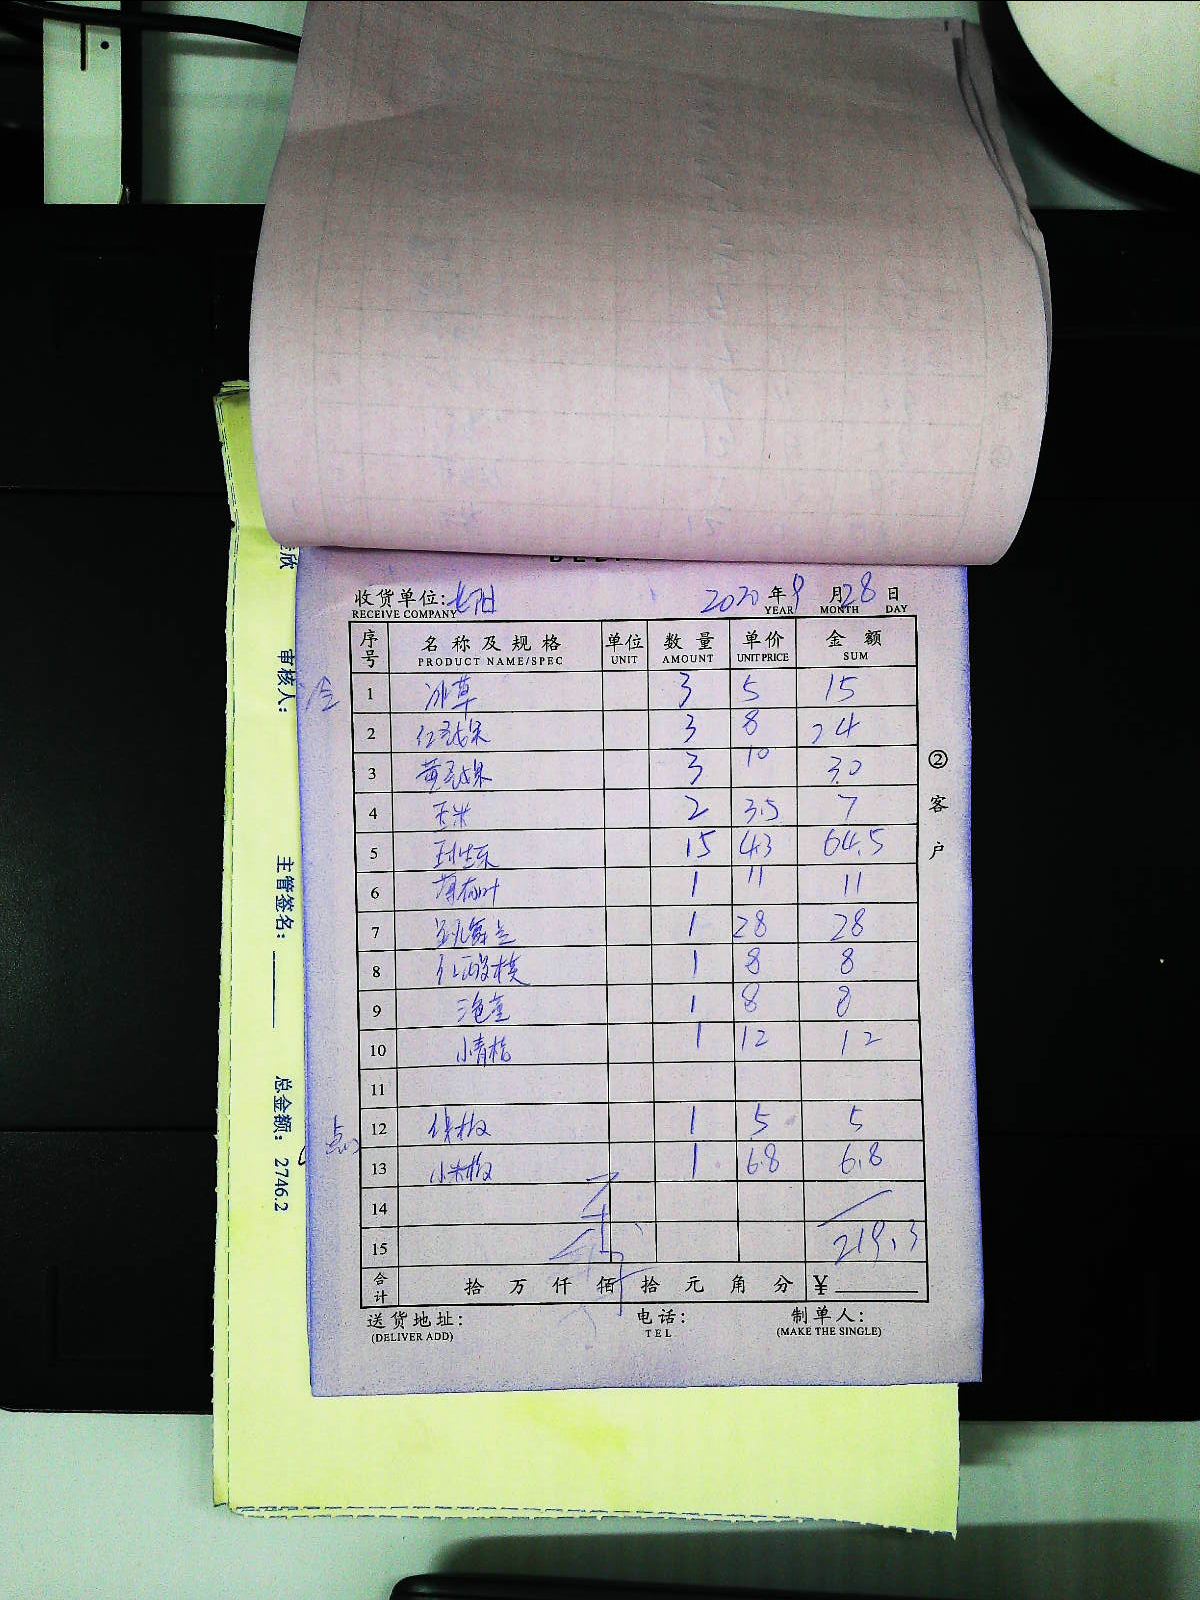 收货单位: 2020年9月28日
RECEIVE COMPANY YEAR MONTH DAY
序号 名称及规格 单位 数量 单价 金额
PRODUCT NAME/SPEC UNIT AMOUNT UNIT PRICE SUM
冷 1 冰草 3 5 15
2 红 3 8 24
3 黄 3 10 30
4 玉米 2 3.5 7
5 15 4.3 64.5
6 薄荷叶 1 11 11
7 1 28 28
8 红酸模 1 8 8
9 三色堇 1 8 8
10 小青桔 1 12 12
11
点心 12 1 5 5
13 小米椒 1 6.8 6.8
14
15 219.3
合计 拾 万 仟 佰 拾 元 角 分 ¥
送货地址: 电话: 制单人:
(DELIVER ADD) TEL (MAKE THE SINGLE)
②客户
欣
审核人:
主管签名:
总金额: 2746.2